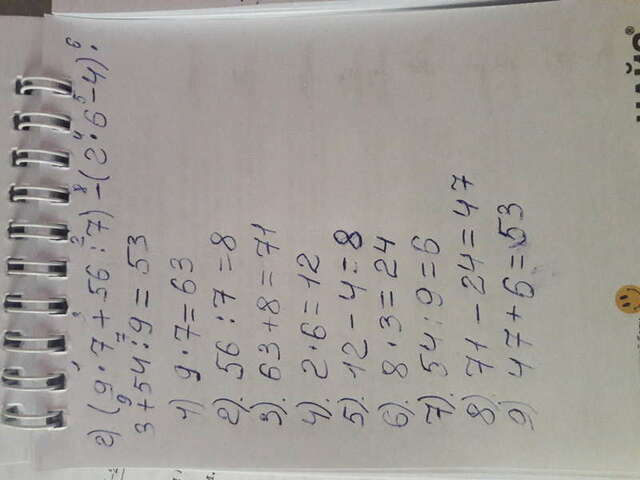 1 3 2 8 4 5 6
е) (9·7+56:7)-(2·6-4)·
9 7
3+54:9=53
1) 9·7=63
2) 56:7=8
3) 63+8=71
4) 2·6=12
5) 12-4=8
6) 8·3=24
7) 54:9=6
8) 71-24=47
9) 47+6=53